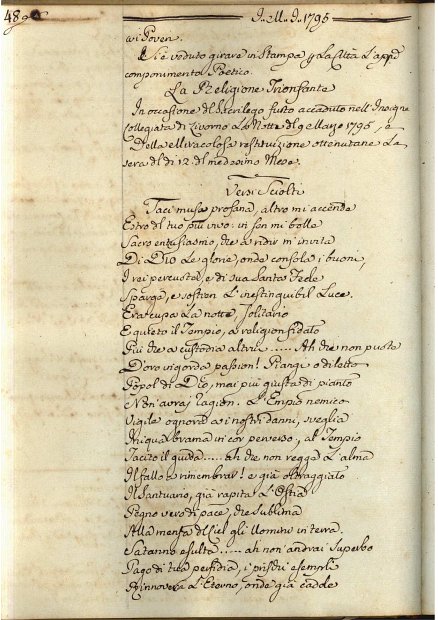 48
J. M. J. 1795
ai Poveri.
Si è veduto girare in Stampa p la Città l'app.
componimento Poetico.
La Religione Trionfante
In occasione del Sacrilego furto accaduto nell'Insigne
Collegiata di Livorno la Notte del 9 Marzo 1795, e
Della Miracolosa restituzione ottenutane La
sera del dì 12. del medesimo Mese.
Versi Sciolti
Taci musa profana, altro mi accende
Estro del tuo più vivo: in sen mi bolle
Sacro entusiasmo, che a ridir m'invita
Di Dio Le glorie, onde consola i buoni,
I rei percuote, e di sua Santa Fede
Sparge, e sostien L'inestinguibil Luce.
Era cupa La notte, Solitario
E queto il Tempio, a religion fidato
Più che a custodia altrui ..... Ah che non puote
D'oro ingorda passion! Piangi o diletto
Popol di Dio, mai più giusta di pianto
Non avraj ragion. L'Empio nemico
Vigile ognora a i nostri danni, sveglia
Iniqua brama in cor perverso, al Tempio
Tacito il guida ..... ah che non regge L'alma
Il fallo a rimembrar! e già oltraggiato
Il Santuario, già rapita L'Ostia
Pegno vero di pace, che sublima
Alla mensa del Ciel gli Uomini in terra.
Satanno esulta ..... ah non andrai Superbo
Pago di tua perfidia, i prischi esempli
Rinnovera L'Eterno, onde già cadde